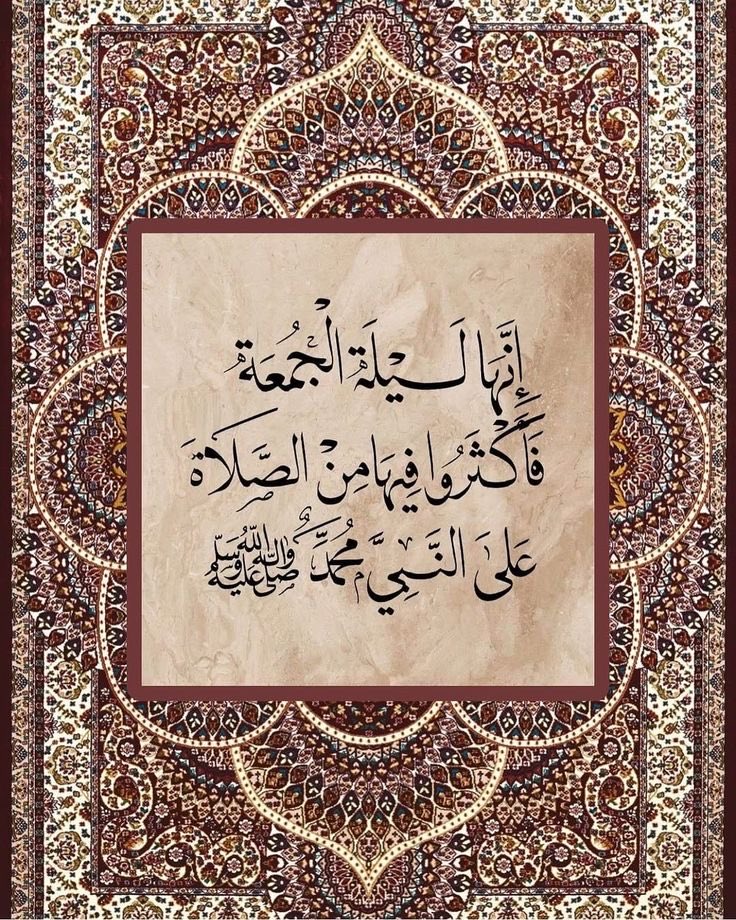 إِنَّهَا لَيْلَةُ الْجُمُعَةِ
فَأَكْثِرُوا فِيهَا مِنْ الصَّلَاةِ
عَلَى النَّبِيِّ مُحَمَّدٍ ﷺ